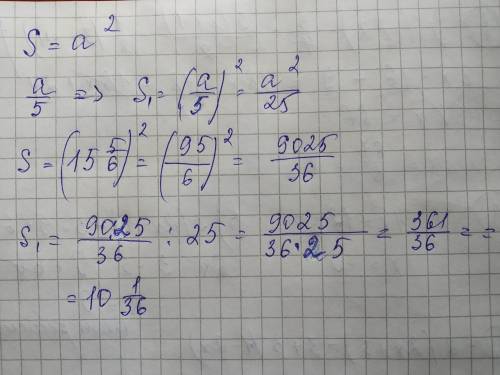 S = a²
a/5 => S₁ = (a/5)² = a²/25
S = (15 5/6)² = (95/6)² = 9025/36
S₁ = 9025/36 : 25 = 9025/(36·25) = 361/36 = =
= 10 1/36